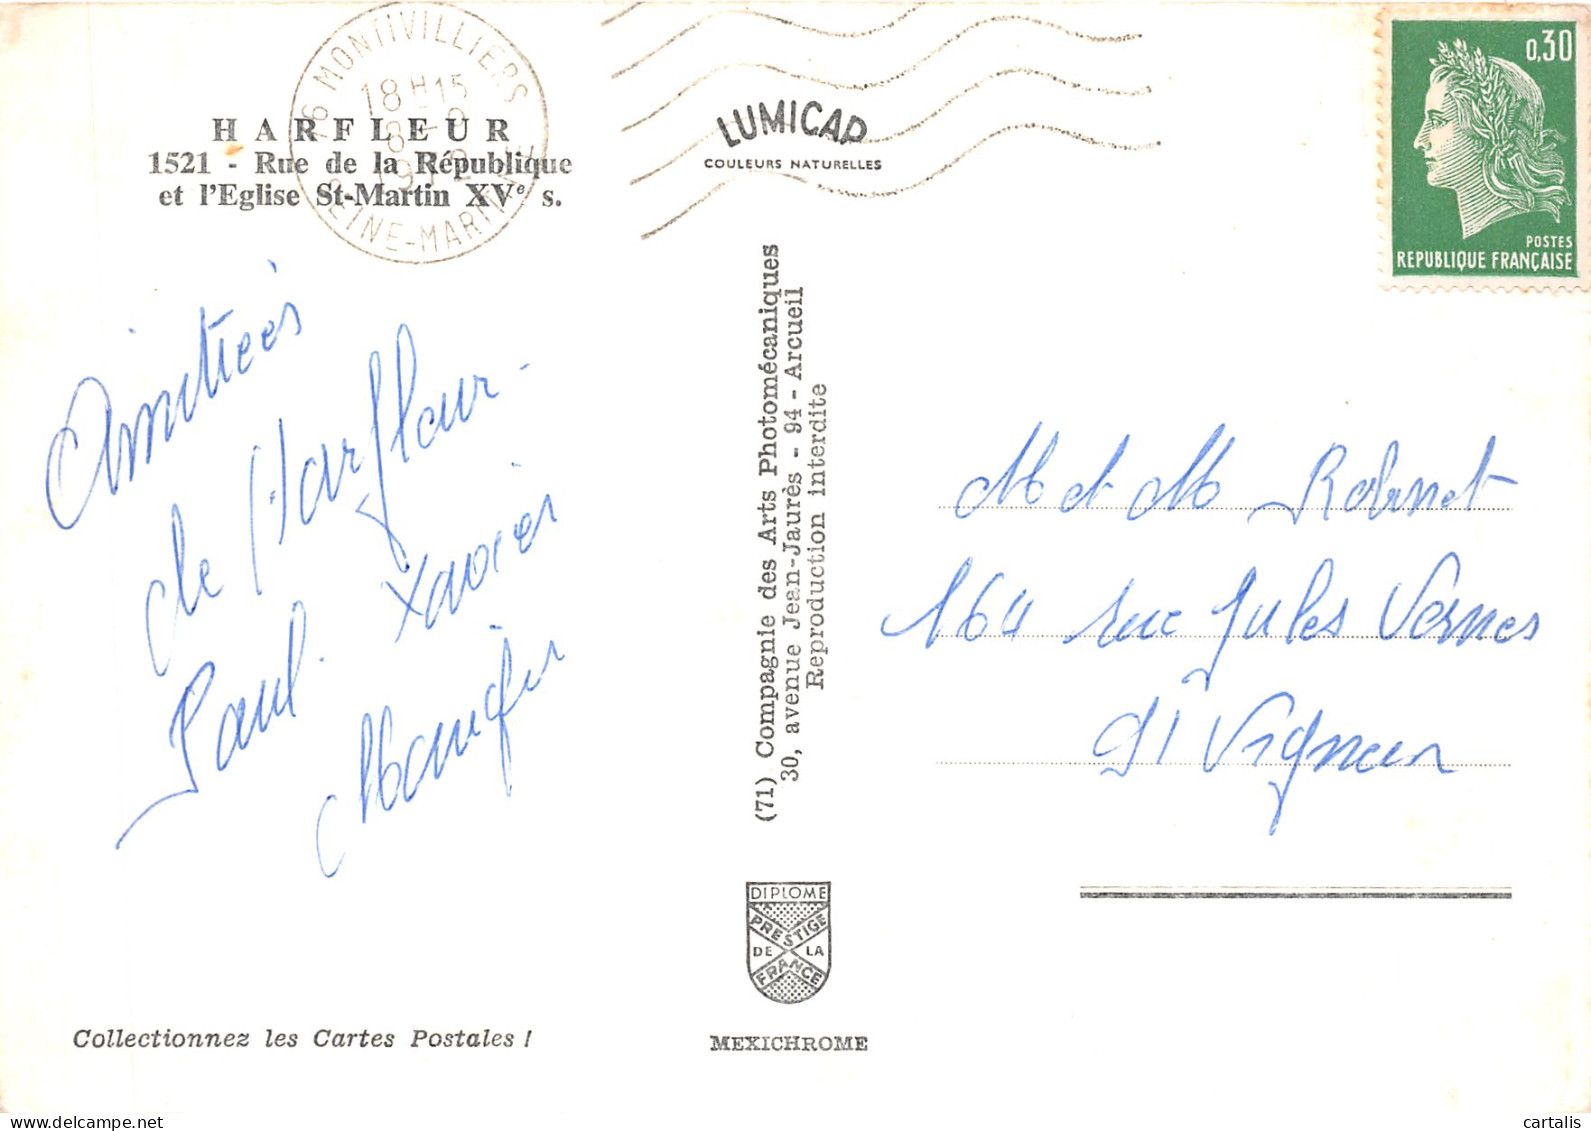 76 MONTIVILLIERS
18 H 15
SEINE-MARITIME
0,30
POSTES
REPUBLIQUE FRANÇAISE
HARFLEUR
1521 - Rue de la République
et l'Eglise St-Martin XVe s.
LUMICAP
COULEURS NATURELLES
Amitiés
de Harfleur -
Paul. Xavier
(71) Compagnie des Arts Photomécaniques
30, avenue Jean-Jaurès - 94 - Arcueil
Reproduction interdite
M et M Robinet
164 rue Jules Vernes
91 Vigneux
DIPLOME
PRESTIGE
DE LA
FRANCE
MEXICHROME
Collectionnez les Cartes Postales !
cartalis
www.delcampe.net